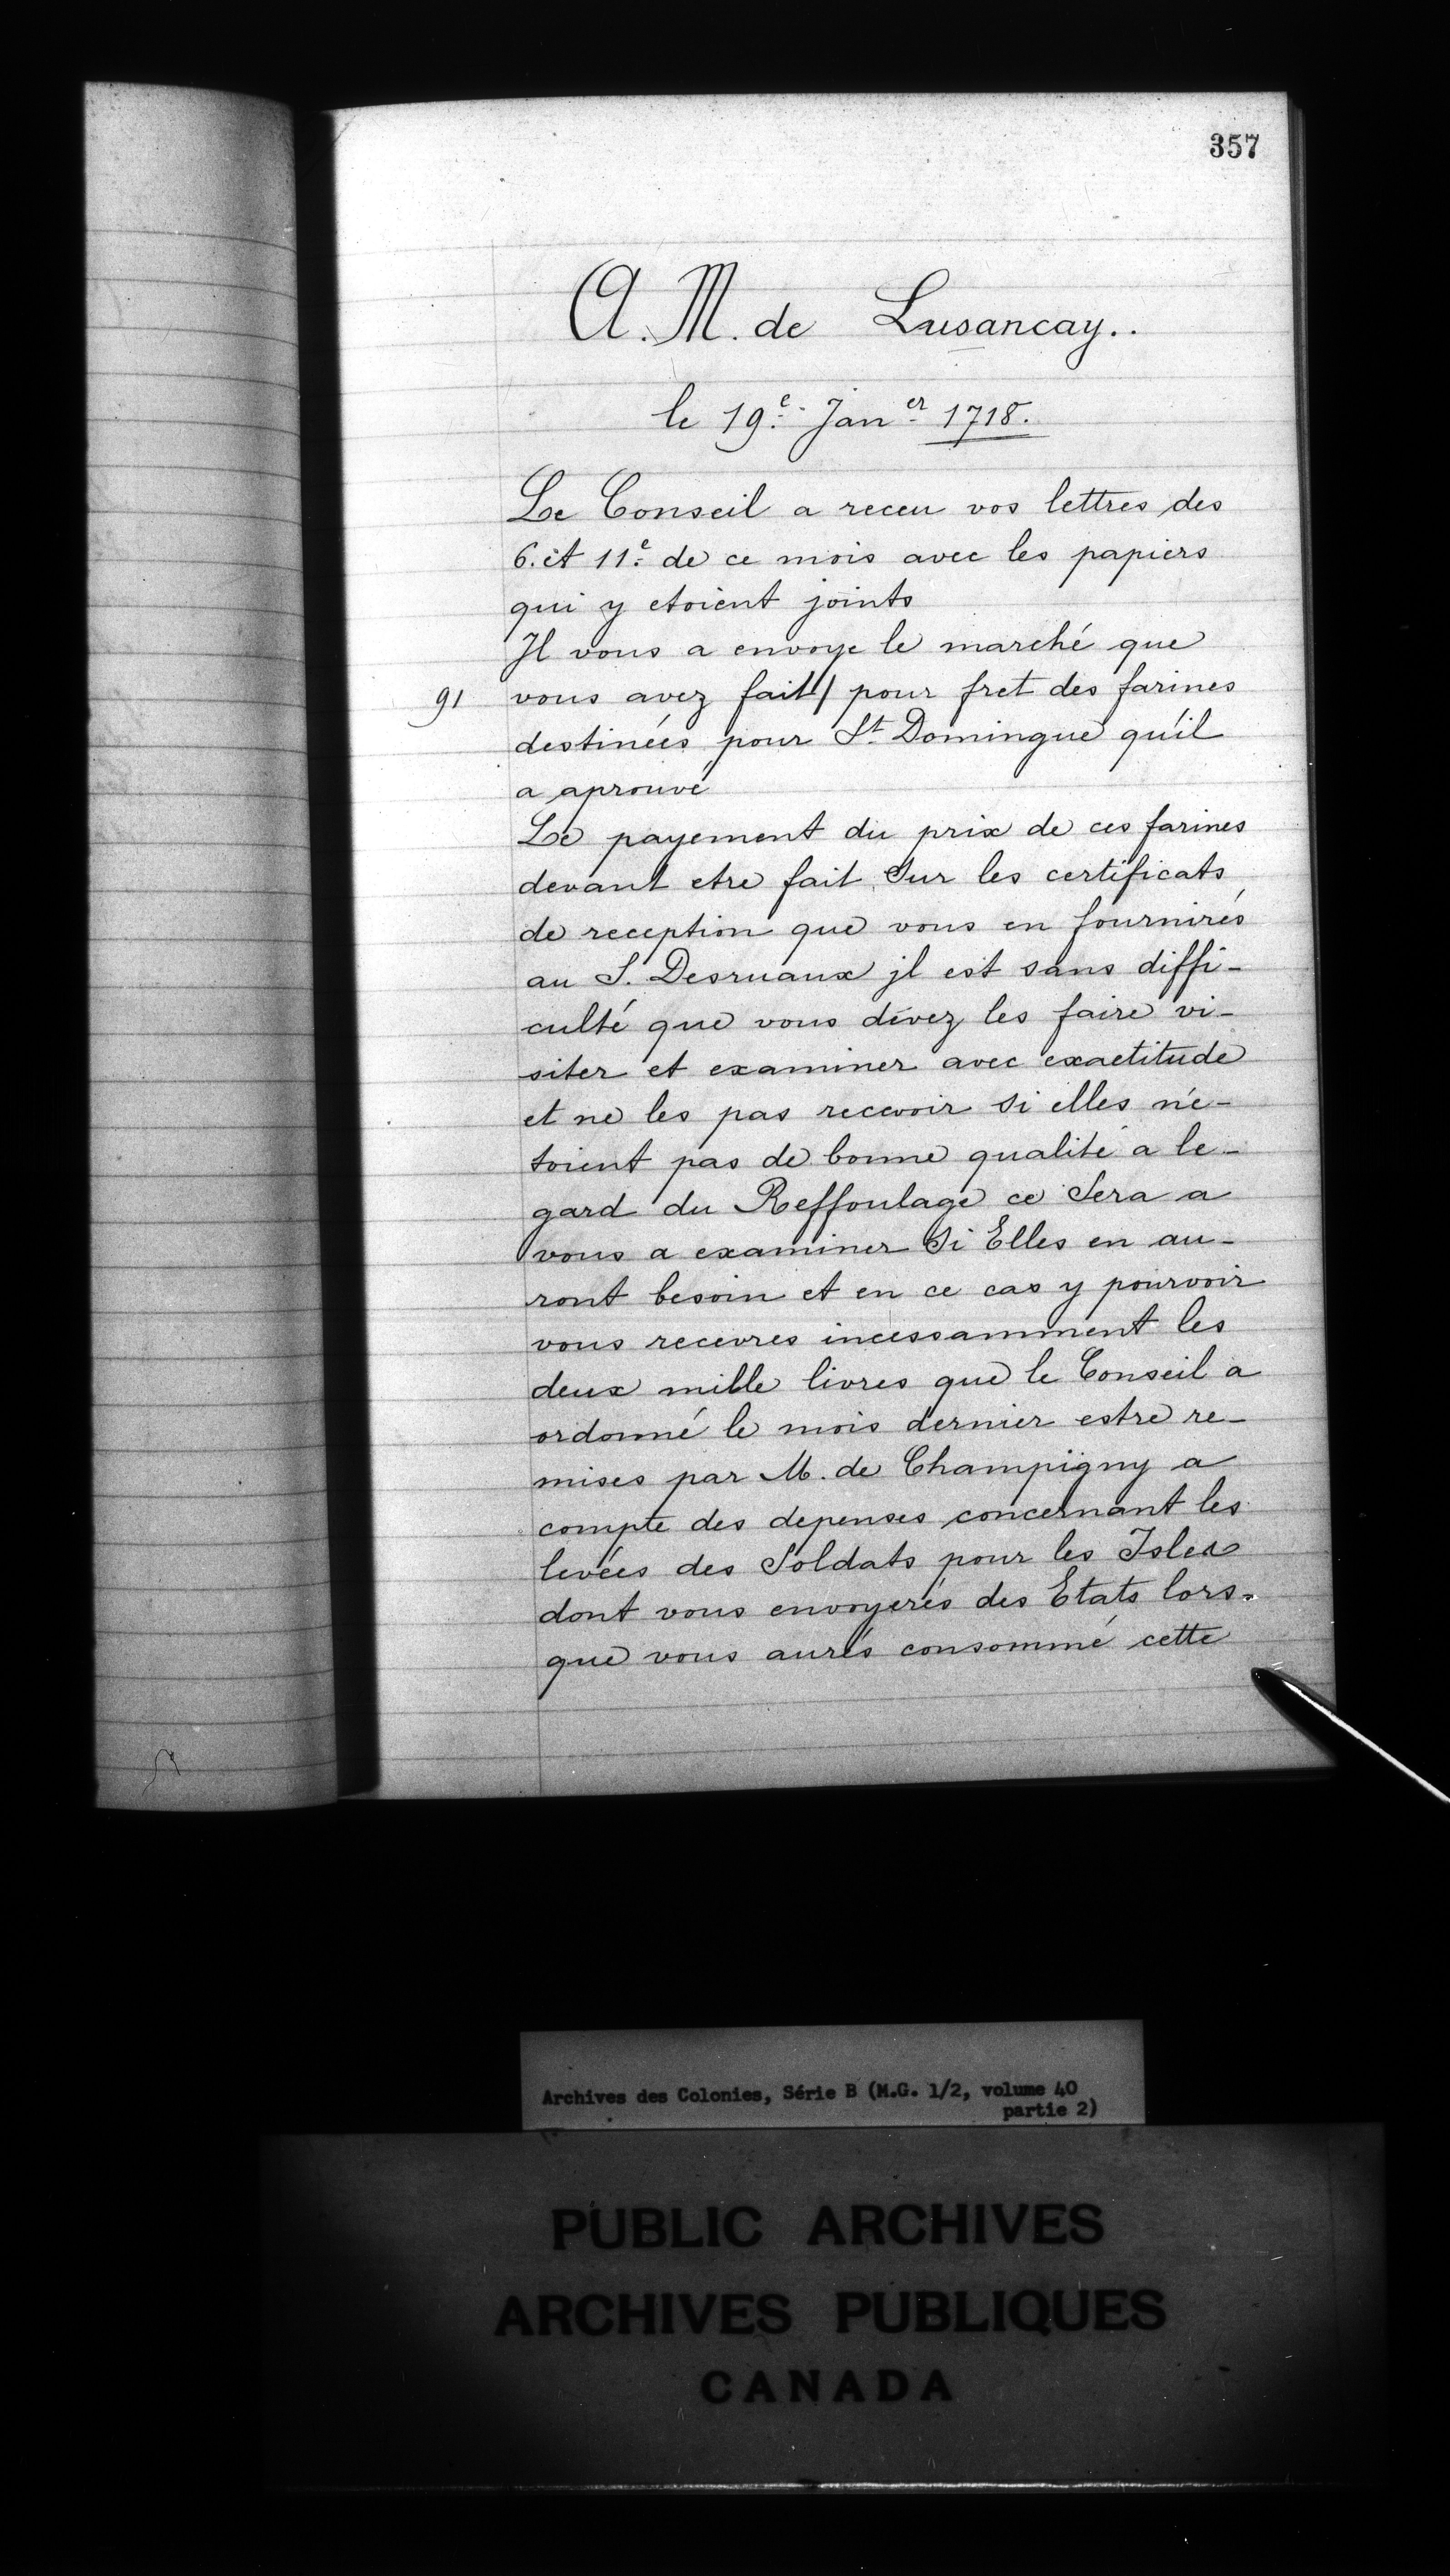 357
A. M. de Lusancay..
le 19.e Jan.er 1718.
Le Conseil a receu vos lettres des
6. et 11.e de ce mois avec les papiers
qui y etoient joints
Il vous a envoye le marché que
91 vous avez fait/ pour fret des farines
destinées pour St. Domingue qu'il
a aprouvé
Le payement du prix de ces farines
devant etre fait Sur les certificats
de reception que vous en fournirés
au S. Desruaux jl est sans diffi-
culté que vous dévez les faire vi-
siter et examiner avec exactitude
et ne les pas recevoir si elles n'e-
toient pas de bonne qualité a le-
gard du Reffoulage ce Sera a
vous a examiner Si Elles en au-
ront besoin et en ce cas y pourvoir
vous recevres incessamment les
deux mille livres que le Conseil a
ordonné le mois dernier estre re-
mises par M. de Champigny a
compte des depenses concernant les
levées des Soldats pour les Isles
dont vous envoyerés des Etats lors-
que vous aurés consommé cette
Archives des Colonies, Série B (M.G. 1/2, volume 40
partie 2)
PUBLIC ARCHIVES
ARCHIVES PUBLIQUES
CANADA